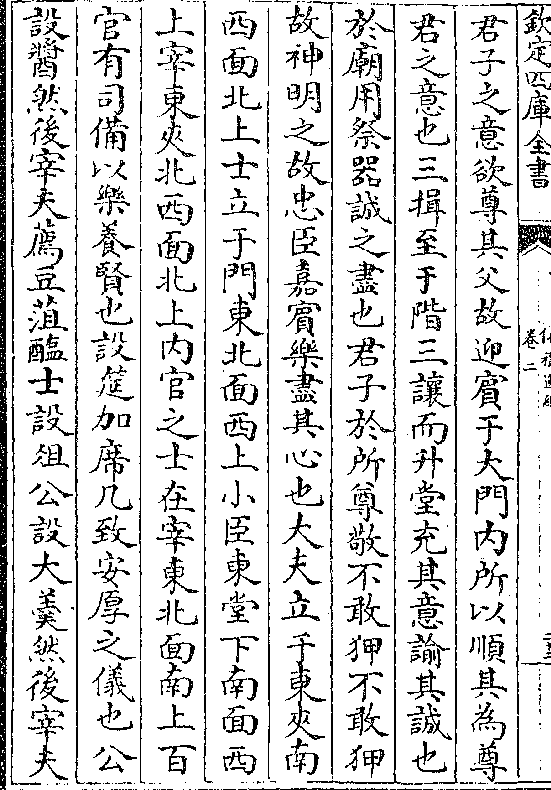 欽定四庫全書
卷二
君子之意欲尊其父故迎賓于大門内所以順其為尊
君之意也三揖至于階三讓而升堂充其意諭其誠也
於廟用祭器誠之盡也君子於所尊敬不敢狎不敢狎
故神明之故忠臣嘉賓樂盡其心也大夫立于東夾南
西面北上士立于門東北面西上小臣東堂下南面西
上宰東夾北西面北上内官之士在宰東北面南上百
官有司備以樂養賢也設筵加席几致安厚之儀也公
設醬然後宰夫薦豆菹醢士設俎公設大羹然後宰夫